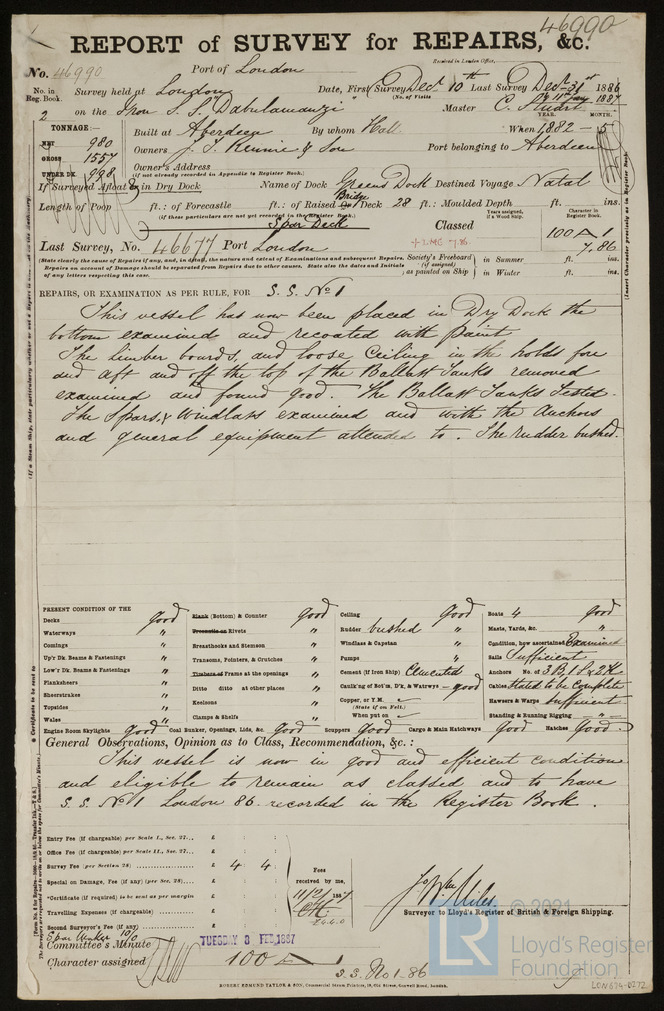 46990
REPORT of SURVEY for REPAIRS, &c.
Received in London Office,
No. 46990 Port of London
No. in Reg. Book. Survey held at London Date, First Survey Decr 10th Last Survey Decr 31st 1886
(No. of Visits
2 on the Iron S.S. Dabulamanzi Master C. Stuart 1887
TONNAGE:— YEAR. MONTH.
NET 980 Built at Aberdeen By whom Hall When 1882 – 5
GROSS 1557 Owners J. T. Rennie & Son Port belonging to Aberdeen
UNDER DK. 998 Owner's Address
(if not already recorded in Appendix to Register Book.)
If Surveyed Afloat & in Dry Dock Name of Dock Greens Dock Destined Voyage Natal
Length of Poop ft.: of Forecastle ft.: of Raised Bridge Deck 28 ft.: Moulded Depth ft. ins.
(if these particulars are not yet recorded in the Register Book.)
Spar Deck Classed Years assigned, if a Wood Ship. Character in Register Book.
100 A 1
7,86
Last Survey, No. 46677 Port London + LMC 7.86
(State clearly the cause of Repairs if any, and, in detail, the nature and extent of Examinations and subsequent Repairs.
Repairs on account of Damage should be separated from Repairs due to other causes. State also the dates and Initials
of any letters respecting this case.
Society's Freeboard (if assigned) as painted on Ship in Summer ft. ins.
in Winter ft. ins.
REPAIRS, OR EXAMINATION AS PER RULE, FOR S.S. No 1
This vessel has now been placed in Dry Dock the
bottom examined and recoated with paint
The limber boards, and loose ceiling in the holds fore
and aft and off the top of the Ballast Tanks removed
examined and found good. The Ballast Tanks Tested.
The Spars, & Windlass examined and with the Anchors
and general equipment attended to. The rudder bushed.
PRESENT CONDITION OF THE
Decks good
Waterways "
Comings "
Up'r Dk. Beams & Fastenings "
Low'r Dk. Beams & Fastenings "
Planksheers "
Sheerstrakes "
Topsides "
Wales "
Engine Room Skylights good
Plank (Bottom) & Counter good
Treenails or Rivets "
Breasthooks and Stemson "
Transoms, Pointers, & Crutches "
Timbers of Frame at the openings "
Ditto ditto at other places "
Keelsons "
Clamps & Shelfs "
Coal Bunker, Openings, Lids, &c. good
Ceiling good
Rudder bushed "
Windlass & Capstan "
Pumps "
Cement (if Iron Ship) Cemented
Caulk'ng of Bot'm, D'k, & Waterwys – good
Copper, or Y.M.
(State if on Felt.)
When put on
Scuppers good Cargo & Main Hatchways good
Boats 4 good
Masts, Yards, &c. "
Condition, how ascertained Examined
Sails Sufficient
Anchors No. of 3 B 1 S & 2 K
Cables Stated to be complete
Hawsers & Warps Sufficient
Standing & Running Rigging – " –
Hatches Good
General Observations, Opinion as to Class, Recommendation, &c.:
This vessel is now in good and efficient condition
and eligible to remain as classed and to have
S.S. No 1 London 86 recorded in the Register Book.
Entry Fee (if chargeable) per Scale I., Sec. 27... £ : :
Office Fee (if chargeable) per Scale II., Sec. 27... £ : :
Survey Fee (per Section 28) £ 4 : 4 :
Special on Damage, Fee (if any) (per Sec. 28)... £ : :
*Certificate (if required) to be sent as per margin £
Travelling Expenses (if chargeable) £
Second Surveyor's Fee (if any) £
Fees received by me,
11/2/1887
Surveyor to Lloyd's Register of British & Foreign Shipping.
Committee's Minute TUESDAY 8 FEB 1887
Character assigned 100 A 1
S.S. No 1-86
ROBERT EDMUND TAYLOR & SON, Commercial Steam Printers, 19, Old Street, Goswell Road, London.
© 2021
LR
Lloyd's Register
Foundation
LON674-0272